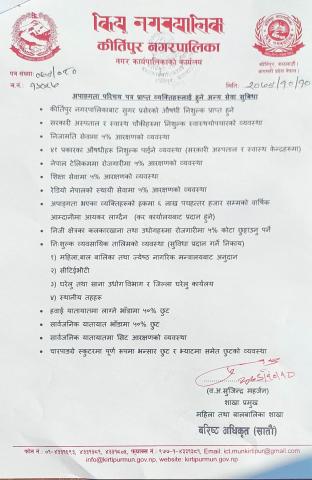 कीर्तिपुर नगरपालिका
नगर कार्यपालिकाको कार्यालय
पत्र संख्या:
च.नं. :
मिति:
अपाङ्गता परिचय पत्र प्राप्त व्यक्तिहरूलाई हुने अन्य सेवा सुविधा
• कीर्तिपुर नगरपालिकाबाट सुगर प्रसेरको औषधी निशुल्क प्राप्त हुने
• सरकारी अस्पताल र स्वास्थ्य चौकीहरूमा निशुल्क स्वास्थ्योपचारको व्यवस्था
• निजामति सेवामा ५% आरक्षणको व्यवस्था
• ४१ प्रकारका औषधीहरू निशुल्क पाईने व्यवस्था (सरकारी अस्पताल र स्वास्थ्य केन्द्रहरूमा)
• नेपाल टेलिकममा रोजगारीमा ५% आरक्षणको व्यवस्था
• शिक्षा सेवामा ५% आरक्षणको व्यवस्था
• रेडियो नेपालको स्थायी सेवामा ५% आरक्षणको व्यवस्था
• अपाङ्गता भएका व्यक्तिहरूको हकमा ६ लाख पचहत्तर हजार सम्मको वार्षिक
आम्दानीमा आयकर लाग्दैन (कर कार्यालयबाट प्रदान हुने)
• निजी क्षेत्रका कलकारखाना तथा उद्योगहरूमा रोजगारीमा ५% कोटा छुट्टाउनु पर्ने
• निःशुल्क व्यवसायिक तालिमको व्यवस्था (सुविधा प्रदान गर्ने निकाय)
१) महिला,बाल बालिका तथा ज्येष्ठ नागरिक मन्त्रालयबाट अनुदान
२) सीटिईभीटी
३) घरेलु तथा साना उद्योग विभाग र जिल्ला घरेलु कार्यालय
४) स्थानीय तहहरू
• हवाई यातायातमा लाग्ने भाँडामा ५०% छुट
• सार्वजनिक यातायात भाँडामा ५०% छुट
• सार्वजनिक यातायातमा सिट आरक्षणको व्यवस्था
• चारपाङ्ग्रे स्कुटरमा पूर्ण रूपमा भन्सार छुट र भ्याटमा समेत छुटको व्यवस्था
(व.अ.मुजिन्द्र महर्जन)
शाखा प्रमुख
महिला तथा बालबालिका शाखा
बरिष्ठ अधिकृत (सातौं)
Email: ict.munkirtipur@gmail.com
info@kirtipurmun.gov.np, website: kirtipurmun.gov.np